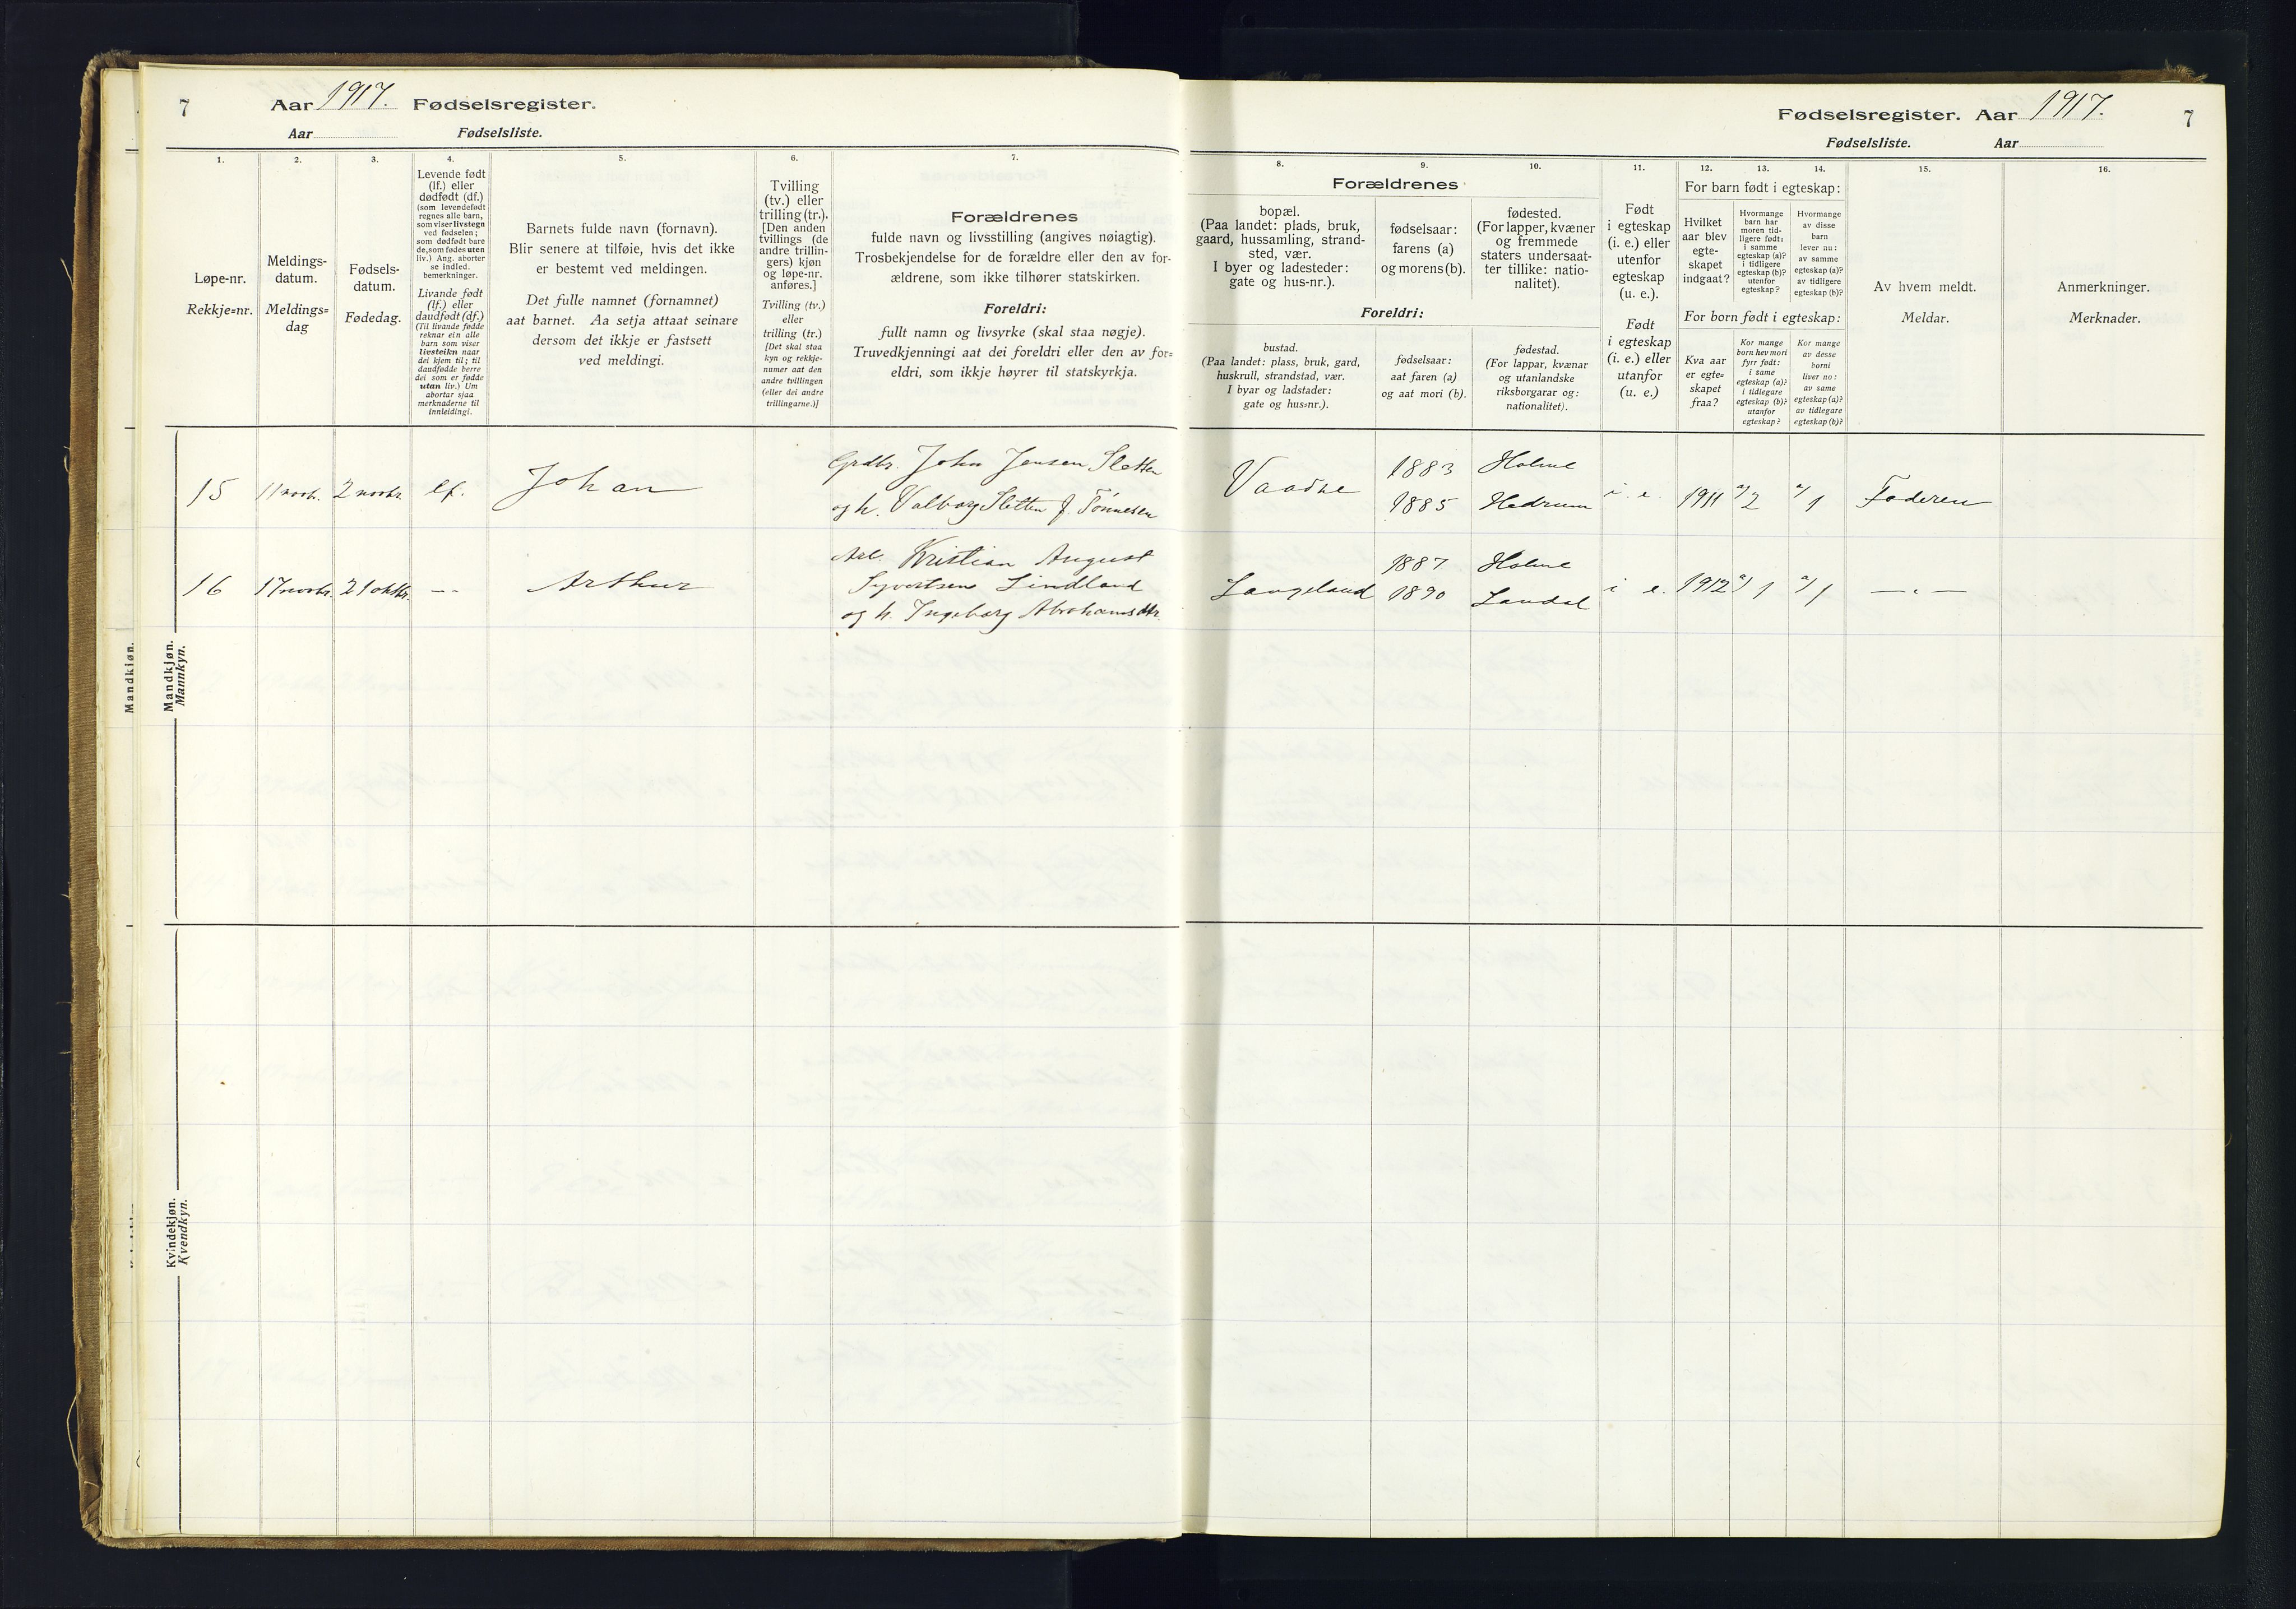 7
Aar 1917. Fødselsregister.
Aar Fødselsliste.
1.
Løpe-nr.
Rekkje=nr.
2.
Meldings-
datum.
Meldings=
dag
3.
Fødsels-
datum.
Fødedag.
4.
Levende født
(lf.) eller
dødfødt (df.)
(som levendefødt
regnes alle barn,
som viser livstegn
ved fødselen;
som dødfødt bare
de, som fødes uten
liv.) Ang. aborter
se indled.
bemerkninger.
Livande født
(lf.) eller
daudfødt (df.)
(Til livande fødde
reknar ein alle
barn som viser
livsteikn naar
dei kjem til; til
daudfødde berre
dei som er fødde
utan liv.) Um
abortar sjaa
merknaderne til
innleidingi.
5.
Barnets fulde navn (fornavn).
Blir senere at tilføie, hvis det ikke
er bestemt ved meldingen.
Det fulle namnet (fornamnet)
aat barnet. Aa setja attaat seinare
dersom det ikkje er fastsett
ved meldingi.
6.
Tvilling
(tv.) eller
trilling (tr.).
[Den anden
tvillings (de
andre trillin-
gers) kjøn
og løpe-nr.
anføres.]
Tvilling (tv.)
eller
trilling (tr.)
[Det skal staa
kyn og rekkje-
numer aat den
andre tvillingen
(eller dei andre
trillingarne.)]
7.
Forældrenes
fulde navn og livsstilling (angives nøiagtig).
Trosbekjendelse for de forældre eller den av for-
ældrene, som ikke tilhører statskirken.
Foreldri:
fullt namn og livsyrke (skal staa nøgje).
Truvedkjenningi aat dei foreldri eller den av for=
eldri, som ikkje høyrer til statskyrkja.
Mandkjøn.
Mandkjøn.
Mannkyn.
15 11 novb. 2 novbr. lf. Johan
Grdbr. John Jensen Sletten
og h. Valborg Sletten f. Tønnesen
16 17 novbr. 21 oktbr. -- Arthur
Arb. Kristian August
Syvertsen Lindland
og h. Ingeborg Abrahamsdtr.
Kvindekjøn.
Kvendkyn.
Fødselsregister. Aar 1917.
7
Fødselsliste. Aar
8.
Forældrenes
bopæl.
(Paa landet: plads, bruk,
gaard, hussamling, strand-
sted, vær.
I byer og ladesteder:
gate og hus-nr.).
9.
fødselsaar:
farens (a)
og morens (b).
10.
fødested.
(For lapper, kvæner
og fremmede
staters undersaat-
ter tillike: natio-
nalitet).
Foreldri:
bustad.
(Paa landet: plass, bruk, gard,
huskrull, strandstad, vær.
I byar og ladstader:
gate og hus=nr.).
fødselsaar:
aat faren (a)
og aat mori (b).
fødestad.
(For lappar, kvænar
og utanlandske
riksborgarar og:
nationalitet).
11.
Født
i egteskap
(i. e.) eller
utenfor
egteskap
(u. e.).
Født
i egteskap
(i. e.) eller
utanfor
(u. e.)
12. 13. 14.
For barn født i egteskap:
Hvilket
aar blev
egte-
skapet
indgaat?
Hvormange
barn har
moren tid-
ligere født:
i samme
egteskap (a)?
i tidligere
egteskap (b)?
utenfor
egteskap?
Hvormange
av disse
barn
lever nu:
av samme
egteskap (a)?
av tidligere
egteskap (b)?
For born født i egteskap:
Kva aar
er egte=
skapet
fraa?
Kor mange
born hev mori
fyrr født:
i same
egteskap (a)?
i tidlegare
egteskap (b)?
utanfor
egteskap?
Kor mange
av desse
borni
liver no:
av same
egteskap (a)?
av tidlegare
egteskap (b)?
15.
Av hvem meldt.
Meldar.
16.
Anmerkninger.
Merknader.
Vaadne 1883 Holme
1885 Hedrum i. e. 1911 a/2 a/1 Faderen
Langeland 1887 Holme
1890 Laudal i e. 1912 a/1 a/1 — „ —